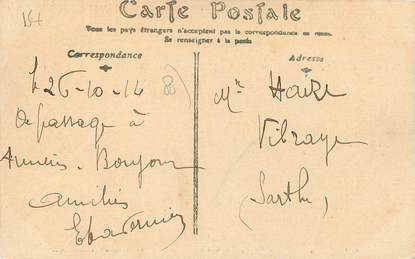 Carte Postale
Tous les pays étrangers n'acceptent pas la correspondance au recto.
Se renseigner à la poste
Correspondance
Adresse
le 26-10-14
De passage à
Amiens. Bonjour
amitiés
Mr Haize
Vibraye
(Sarthe)